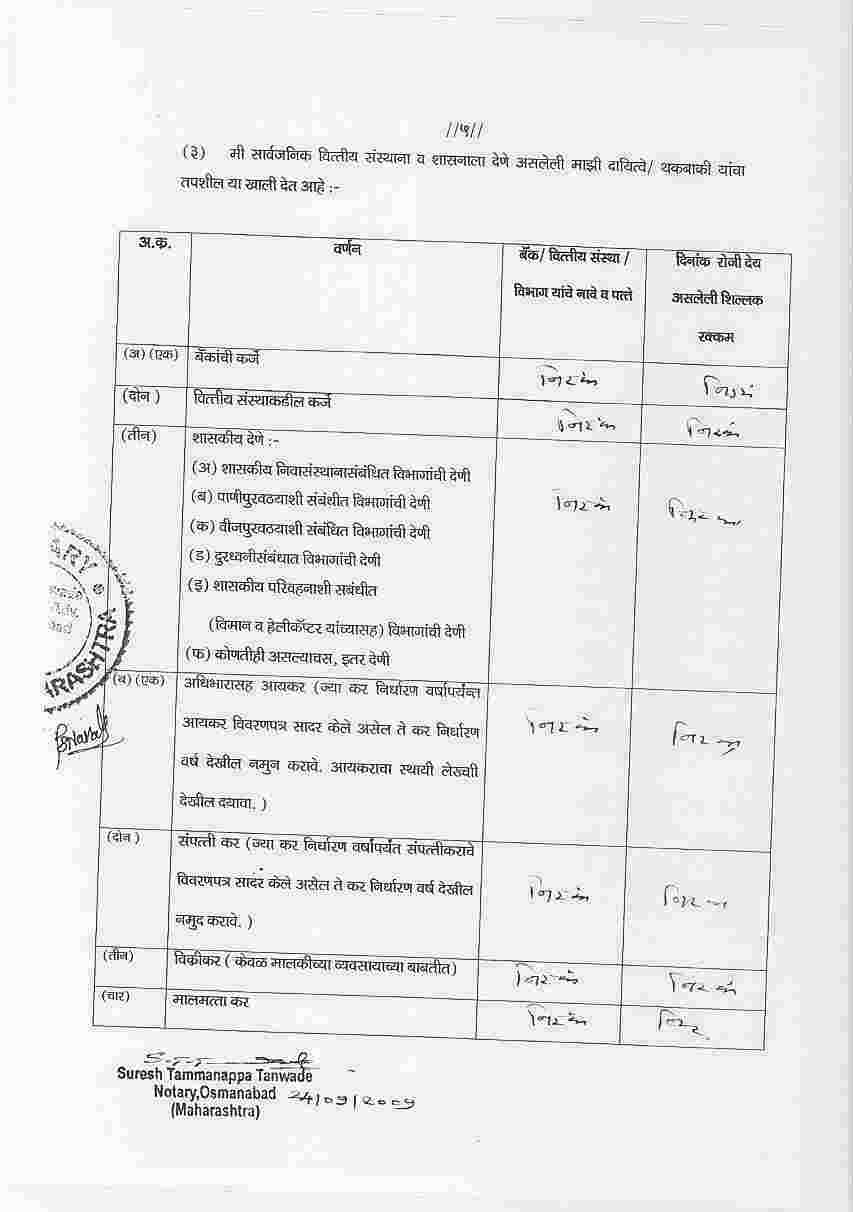 //५//
(३) मी सार्वजनिक वित्तीय संस्थाना व शासनाला देणे असलेली माझी दायित्वे/ थकबाकी यांचा
तपशील या खाली देत आहे :-
अ.क्र. वर्णन बॅंक/ वित्तीय संस्था / दिनांक रोजी देय
विभाग यांचे नावे व पत्ते असलेली शिल्लक
रक्कम
(अ) (एक) बॅंकांची कर्जे निरंक निरंक
(दोन ) वित्तीय संस्थाकडील कर्जे निरंक निरंक
(तीन) शासकीय देणे :-
(अ) शासकीय निवासंस्थानासंबंधित विभागांची देणी
(ब) पाणीपुरवठयाशी संबंधीत विभागांची देणी निरंक निरंक
(क) वीजपुरवठयाशी संबंधित विभागांची देणी
(ड) दुरध्वनीसंबंधात विभागांची देणी
(इ) शासकीय परिवहनाशी सबंधीत
(विमान व हेलीकॅप्टर यांच्यासह) विभागांची देणी
(फ) कोणतीही असल्याचस, इतर देणी
(ब) (एक) अधिभारासह आयकर (ज्या कर निर्धारण वर्षापर्यन्त
आयकर विवरणपत्र सादर केले असेल ते कर निर्धारण निरंक निरंक
वर्ष देखील नमुन करावे. आयकरावा स्थायी लेखाी
देखील दयावा. )
(दोन ) संपत्ती कर (ज्या कर निर्धारण वर्षापर्यंत संपत्तीकराचे
विवरणपत्र सादर केले असेल ते कर निर्धारण वर्ष देखील निरंक निरंक
नमुद करावे. )
(तीन) विक्रीकर ( केवळ मालकीच्या व्यवसायाच्या बाबतीत) निरंक निरंक
(चार) मालमत्ता कर निरंक
ARY
ARASHTRA
Suresh Tammanappa Tanwade
Notary,Osmanabad 24/09/2009
(Maharashtra)